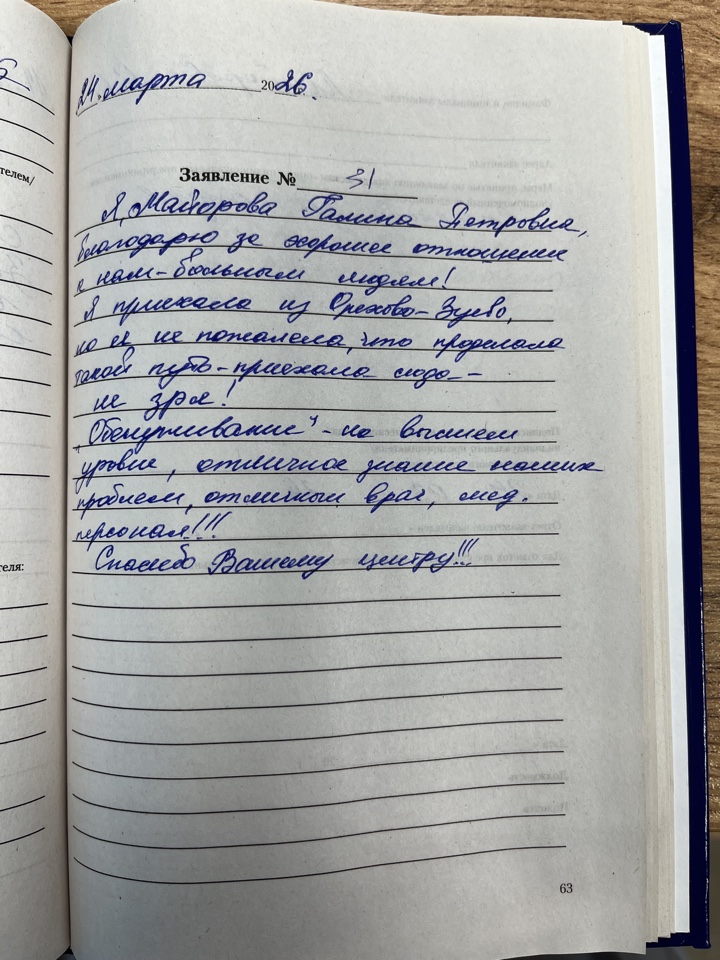 24. марта 2026.
Заявление № 31
Я, Майорова Галина Петровна,
благодарю за хорошее отношение
к нам - больным людям!
Я приехала из Орехово-Зуево,
но я не пожалела, что проделала
такой путь - приехала сюда -
не зря!
"Обслуживание" - на высшем
уровне, отличное знание наших
проблем, отличный врач, мед.
персонал!!!
Спасибо Вашему центру!!!
63
телем/
теля: